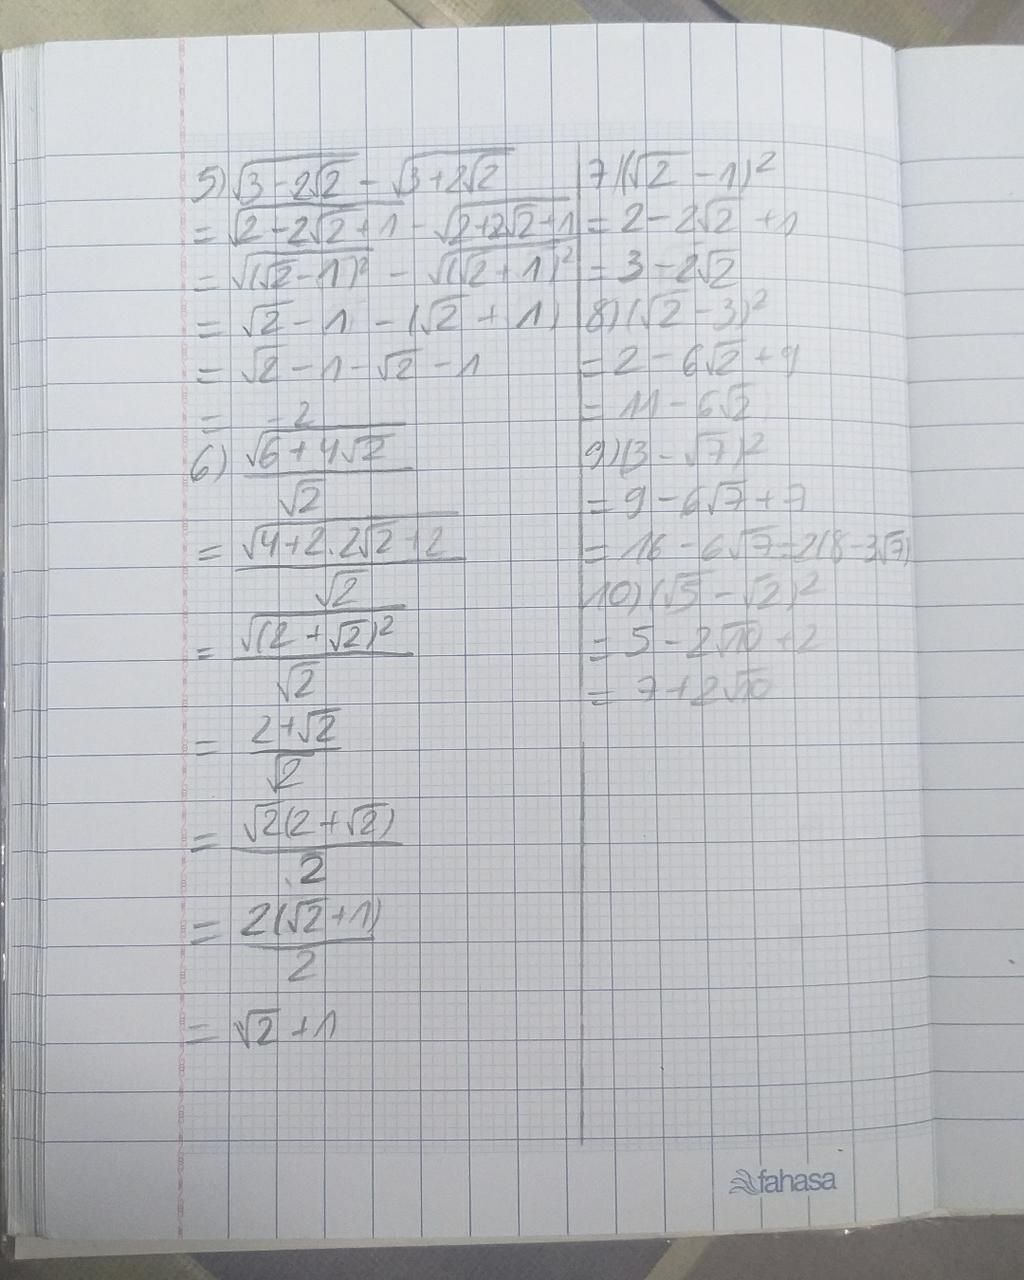 5) √(3 - 2√2) - √(3 + 2√2)
= √(2 - 2√2 + 1) - √(2 + 2√2 + 1)
= √((√2 - 1)²) - √((√2 + 1)²)
= √2 - 1 - (√2 + 1)
= √2 - 1 - √2 - 1
= -2
6) √(6 + 4√2) / √2
= √(4 + 2.2√2 + 2) / √2
= √((2 + √2)²) / √2
= (2 + √2) / √2
= √2(2 + √2) / 2
= 2(√2 + 1) / 2
= √2 + 1
7) (√2 - 1)²
= 2 - 2√2 + 1
= 3 - 2√2
8) (√2 - 3)²
= 2 - 6√2 + 9
= 11 - 6√2
9) (3 - √7)²
= 9 - 6√7 + 7
= 16 - 6√7 = 2(8 - 3√7)
10) (√5 - √2)²
= 5 - 2√10 + 2
= 7 + 2√10
fahasa